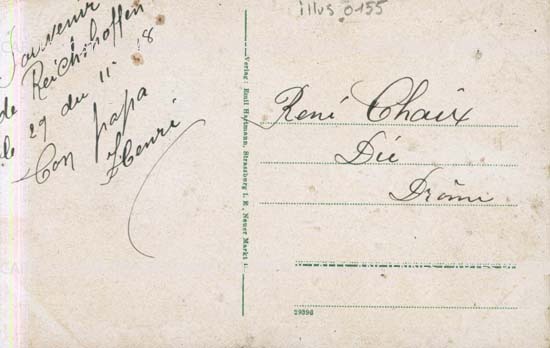 illus 0155
Souvenir
de Reichshoffen
le 29 du 11 - 18
Ton papa
Henri
Verlag: Emil Hartmann, Strassburg i. E., Neuer Markt
René Chaix
Die
Drôme
29396